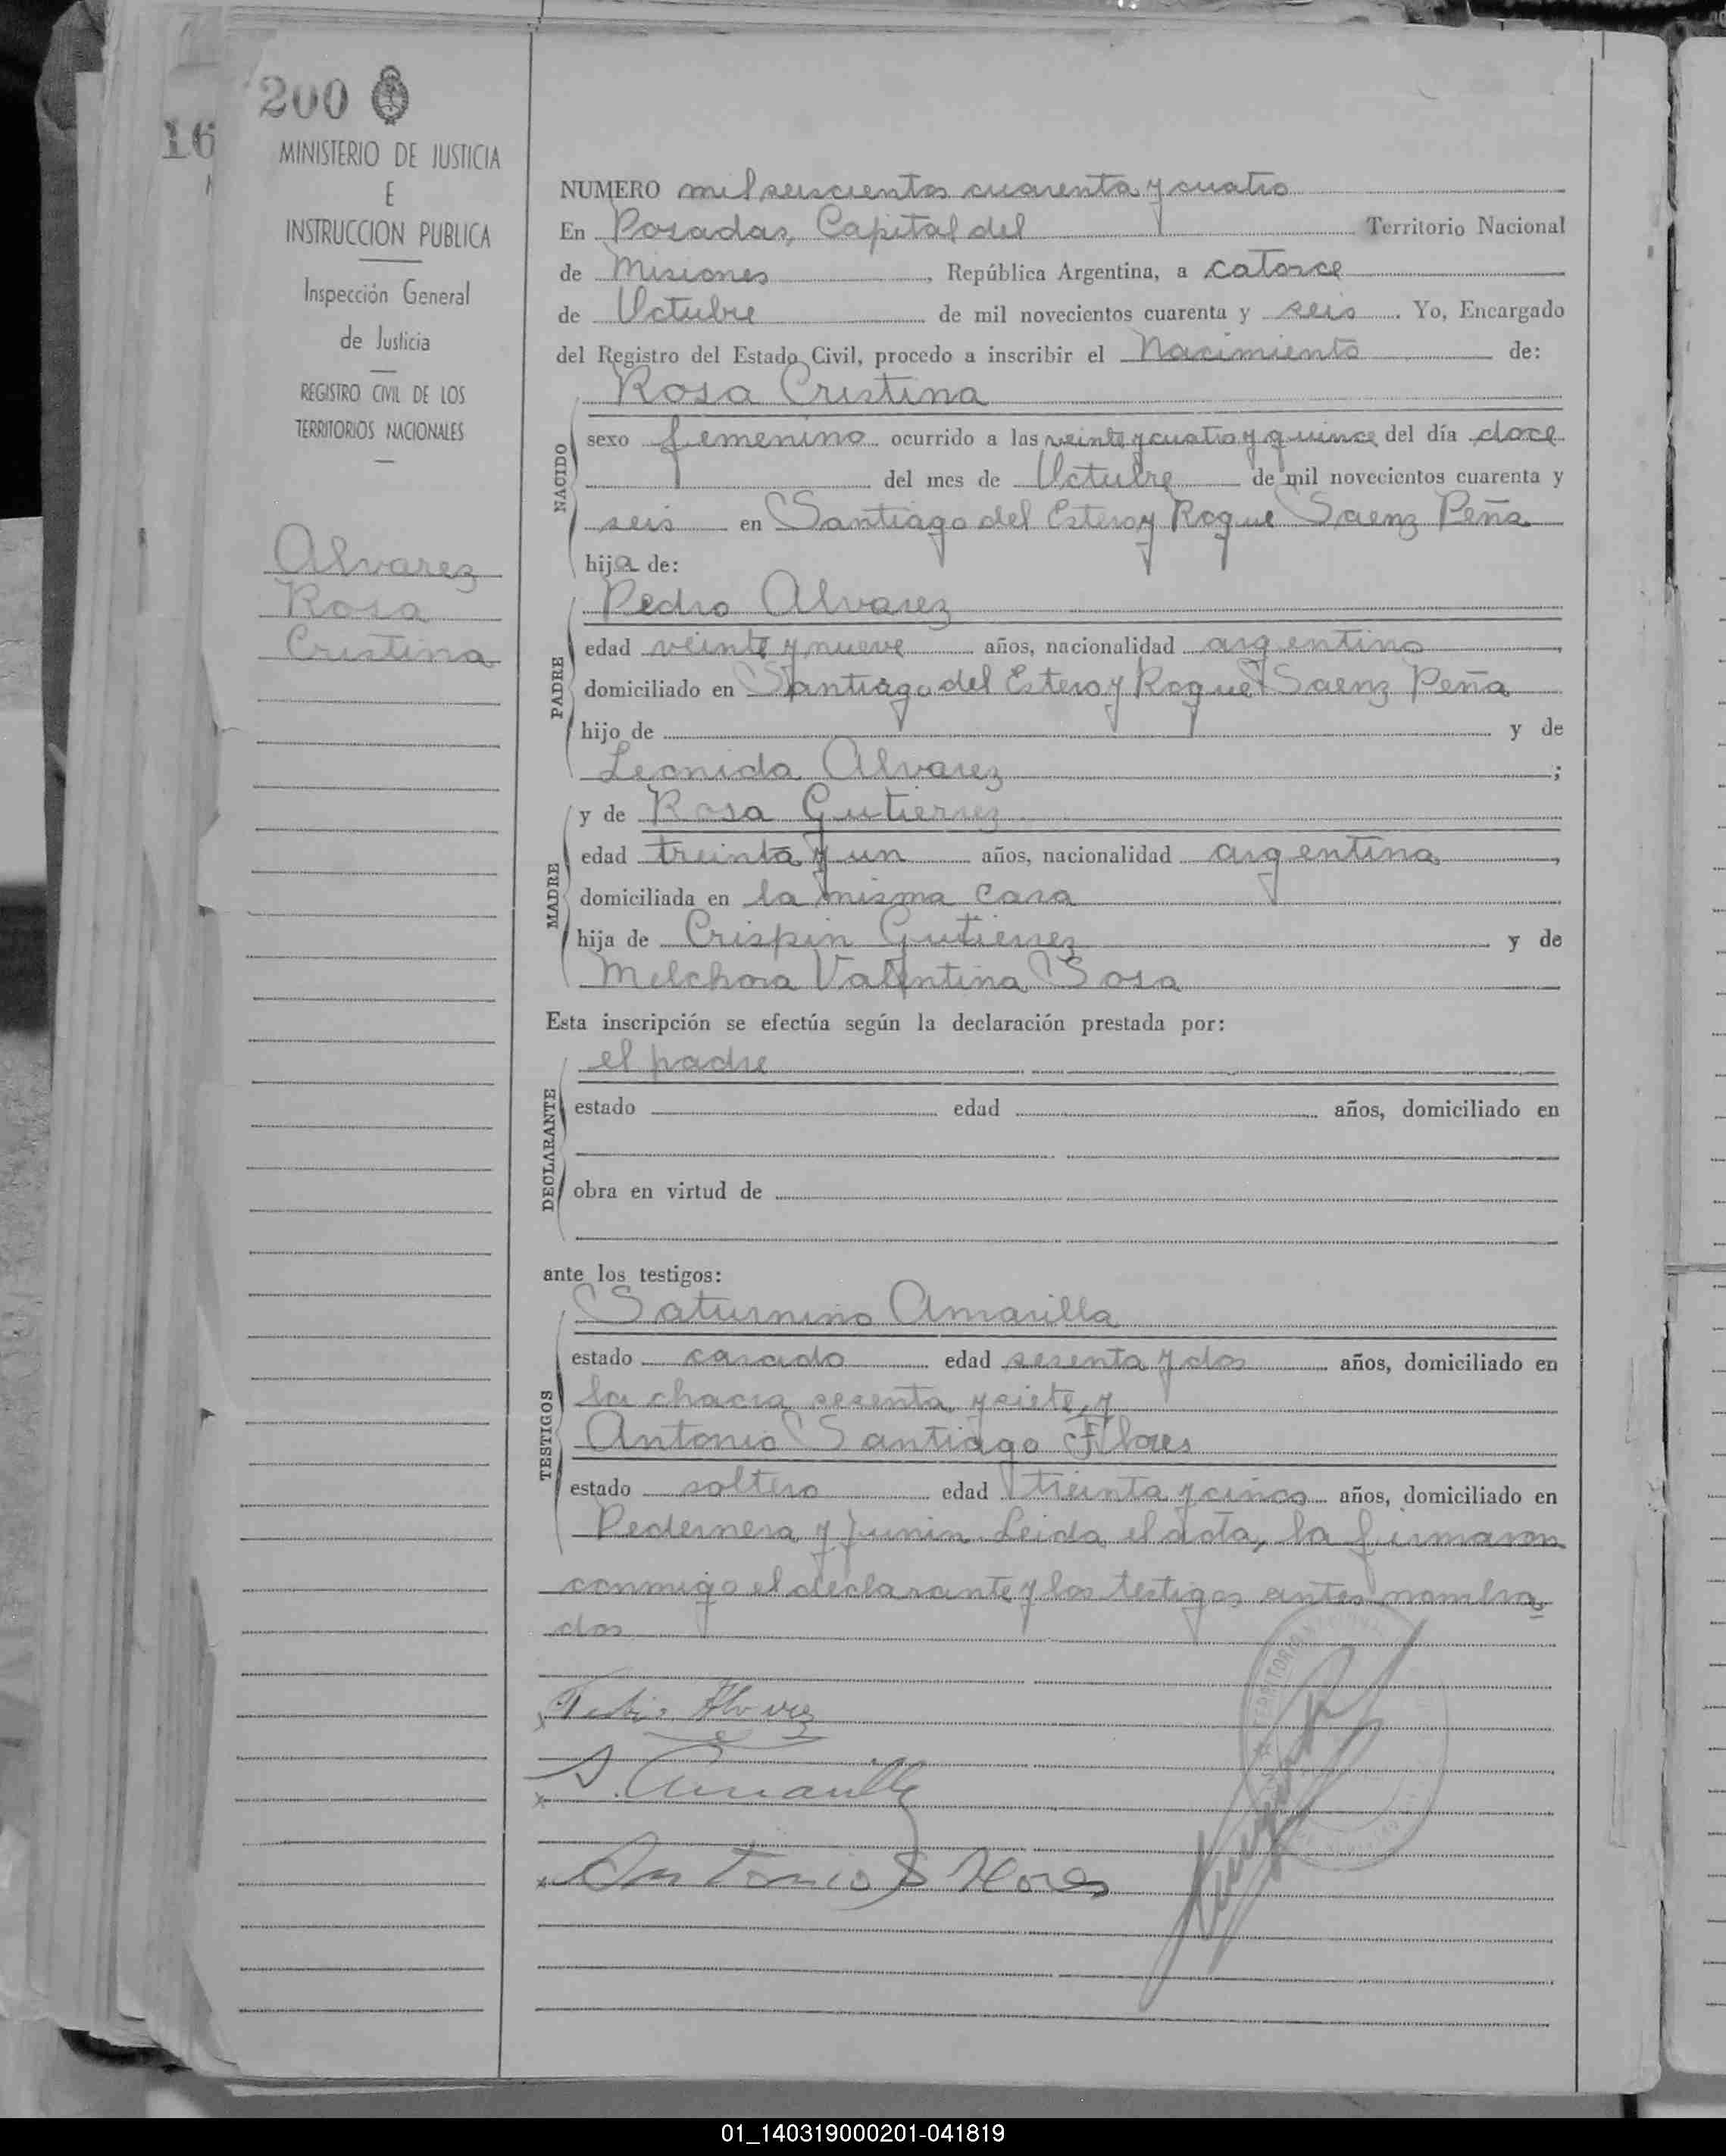 200
16
MINISTERIO DE JUSTICIA
E
INSTRUCCION PUBLICA
Inspección General
de Justicia
REGISTRO CIVIL DE LOS
TERRITORIOS NACIONALES
Alvarez
Rosa
Cristina
NUMERO mil seiscientos cuarenta y cuatro
En Posadas, Capital del Territorio Nacional
de Misiones, República Argentina, a catorce
de Octubre de mil novecientos cuarenta y seis. Yo, Encargado
del Registro del Estado Civil, procedo a inscribir el Nacimiento de:
Rosa Cristina
NACIDO
sexo femenino ocurrido a las veinte y cuatro y quince del día doce
del mes de Octubre de mil novecientos cuarenta y
seis en Santiago del Estero y Roque Saenz Peña
hija de:
Pedro Alvarez
PADRE
edad veinte y nueve años, nacionalidad argentino,
domiciliado en Santiago del Estero y Roque Saenz Peña
hijo de y de
Leonida Alvarez;
MADRE
y de Rosa Gutierrez
edad treinta y un años, nacionalidad argentina,
domiciliada en la misma casa
hija de Crispin Gutierrez y de
Melchora Valentina Sosa
Esta inscripción se efectúa según la declaración prestada por:
DECLARANTE
el padre
estado edad años, domiciliado en
obra en virtud de
ante los testigos:
TESTIGOS
Saturnino Amarilla
estado casado edad sesenta y dos años, domiciliado en
la chacra sesenta y siete, y
Antonio Santiago Flores
estado soltero edad treinta y cinco años, domiciliado en
Pedernera y Junin. Leida el acta, la firmaron
conmigo el declarante y los testigos antes nombra
dos
Pedro Alvarez
S. Amarilla
Antonio S Flores
01_140319000201-041819